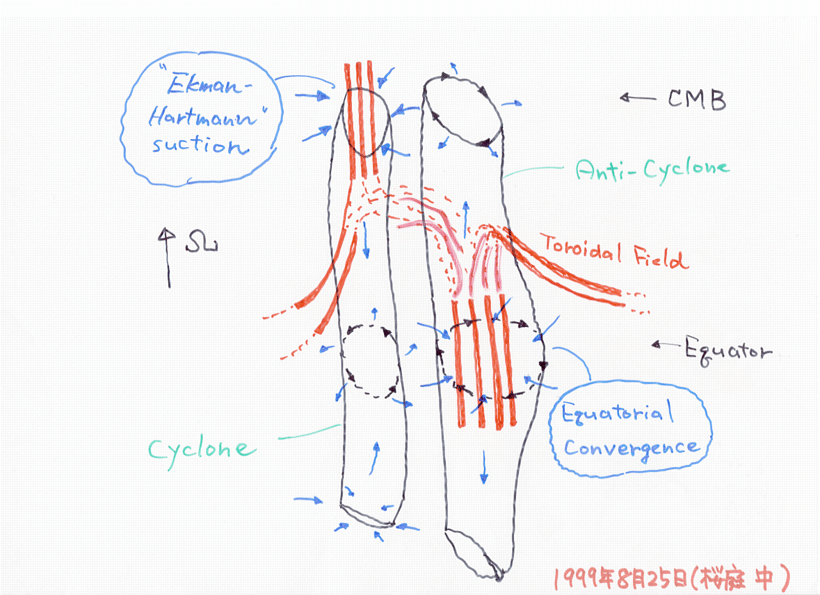 "Ekman-
Hartmann"
suction
← CMB
Anti-Cyclone
↑ Ω
Toroidal Field
← Equator
Equatorial
Convergence
Cyclone
1999年8月25日(桜庭 中)